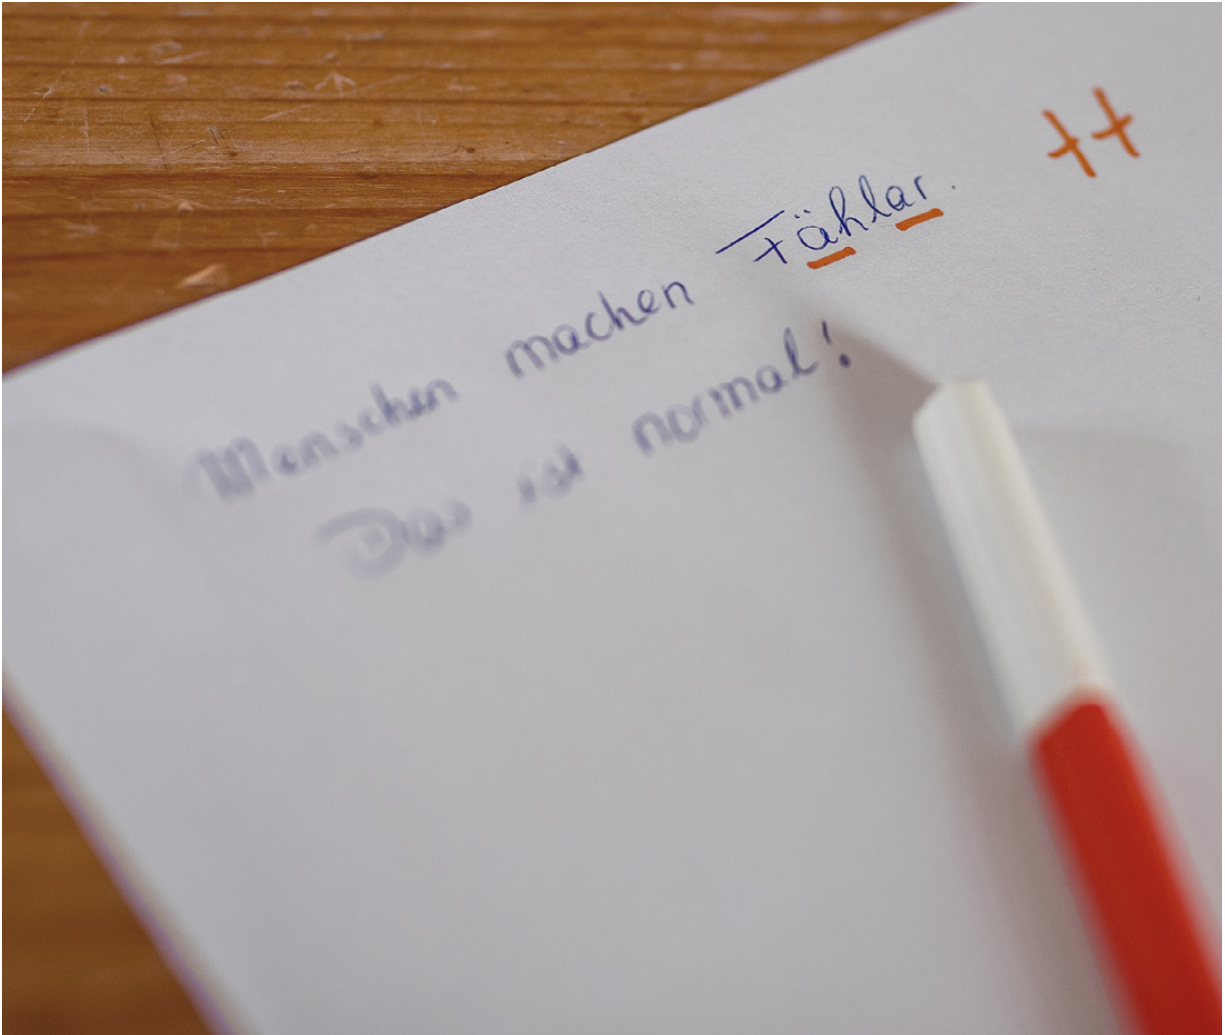 Menschen machen Fählar.
Das ist normal!
++